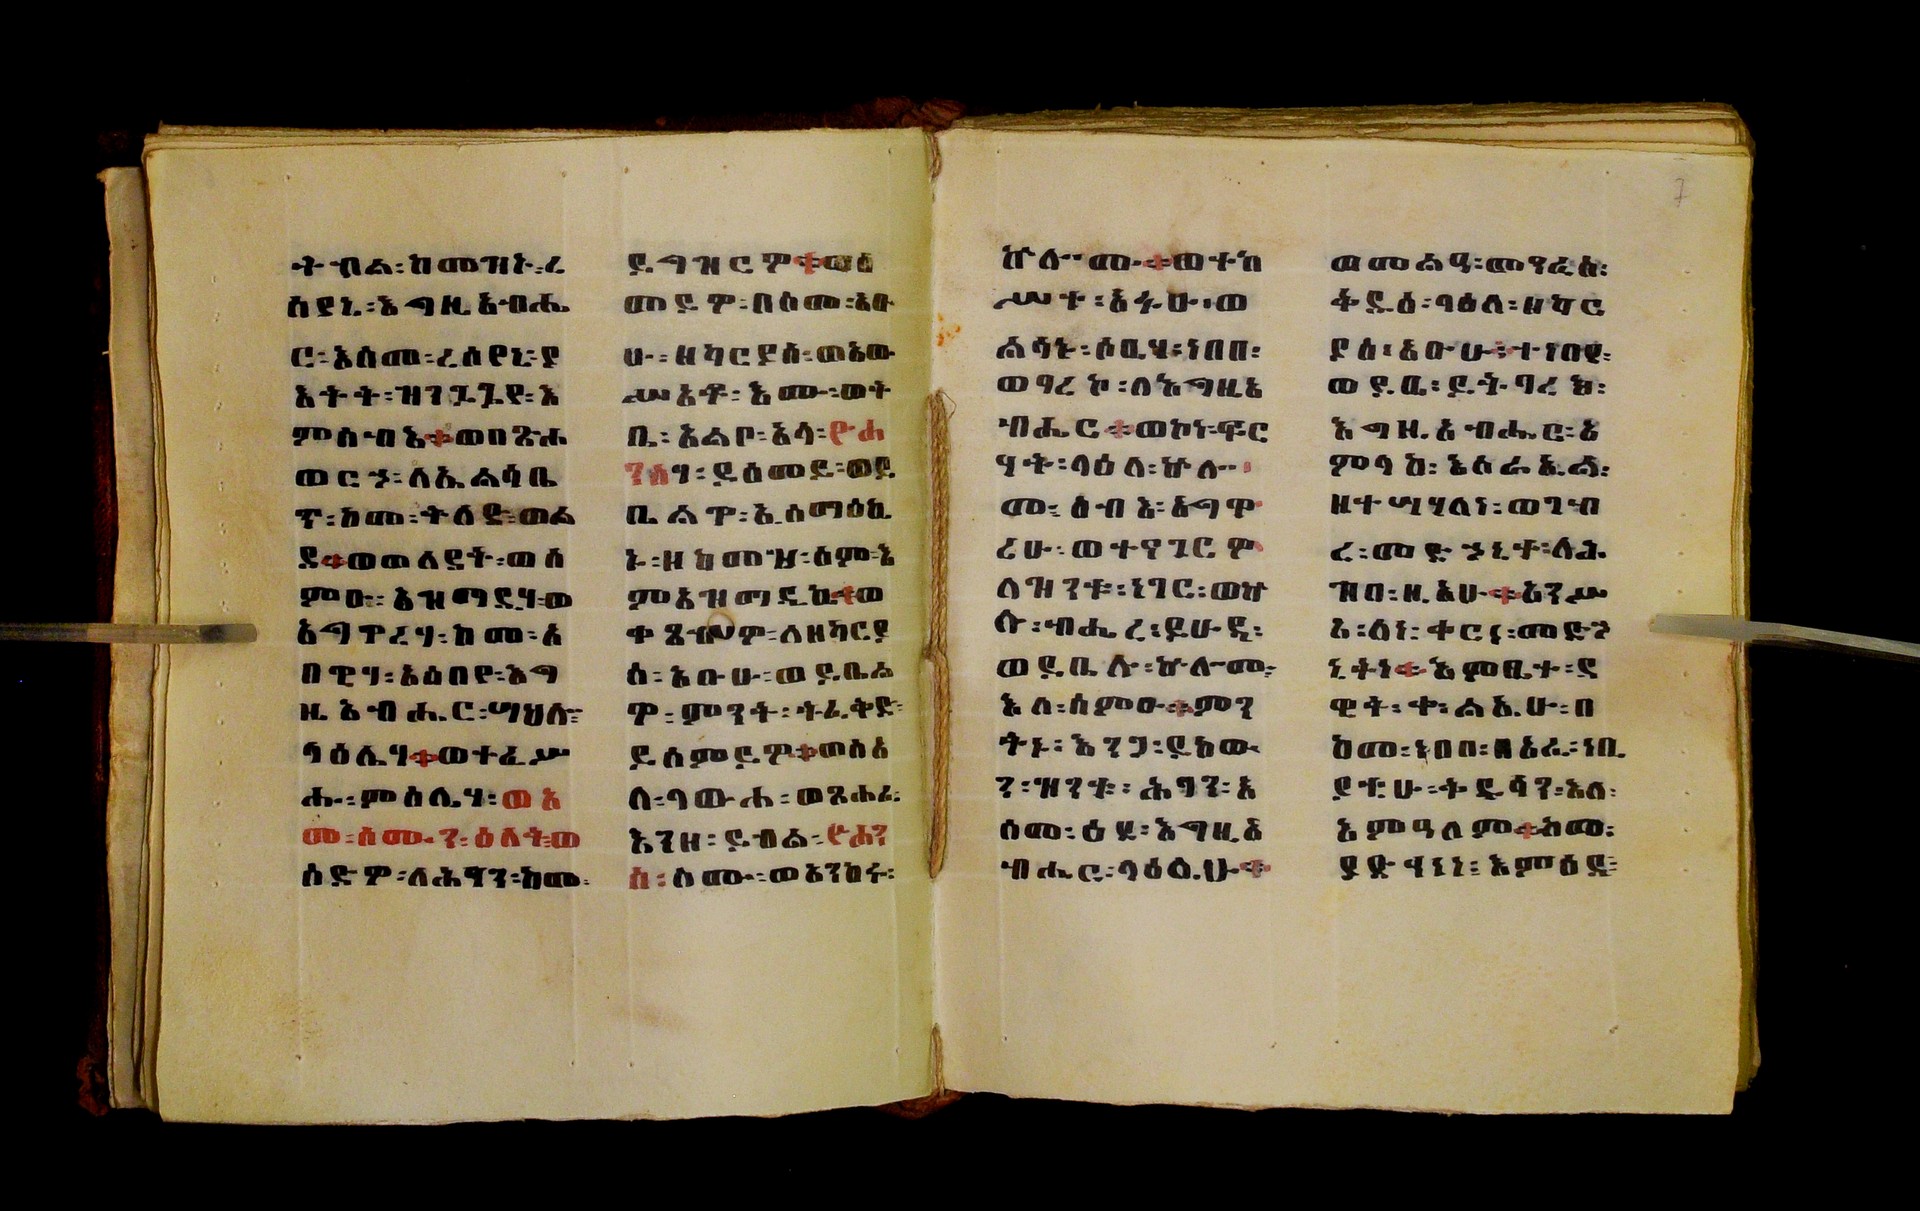 ትብል፡ከመዝኑ፡ረ
ስየኒ፡እግዚአብሔ
ር፡አስመ፡ረሰየኒ፡ያ
እትት፡ዝንጓጔየ፡እ
ምሰብእ፨ወበጽሐ
ወርኃ፡ለኤልሳቤ
ጥ፡ከመ፡ትለድ፡ወል
ደ፨ወወለደት፡ወሰ
ምዑ፡አዝማዲሃ፡ወ
አግዋሪሃ፡ከመ፡አ
በዊሃ፡አዕበየ፡እግ
ዚአብሔር፡ሣህሎ፡
ላዕሌሃ፨ወተፈሥ
ሑ፡ምስሌሃ፡ወአ
መ፡ሰሙን፡ዕለት፡ወ
ሰድዎ፡ለሕፃን፡ከመ፡
ይግዝርዎ፨ወሰ
መይዎ፡በስመ፡አቡ
ሁ፡ዘካርያስ፡ወአው
ሥአት፡እሙ፡ወት
ቤ፡አልቦ፡አላ፡ዮሐ
ንስሃ፡ይሰመይ፡ወይ
ቤልዋ፡ኢሰማዕኪ
ኑ፡ዘከመዝ፡ስም፡እ
ምአዝማዲኪ፨ወ
ቀጸብዎ፡ለዘካርያ
ስ፡አቡሁ፡ወይቤል
ዎ፡ምንት፡ትፈቅድ፡
ይሰምይዎ፨ወሰአ
ለ፡ላውሐ፡ወጸሐፈ፡
እንዘ፡ይብል፡ዮሐን
ስ፡ስሙ፡ወአንከሩ፡
ኵሎሙ፨ወተከ
ሥተ፡አፉሁ፡ወ
ልሳኑ፡ሶቤሃ፡ነበበ፡
ወባረኮ፡ለእግዚአ
ብሔር፨ወኮነ፡ፍር
ሃት፡ላዕለ፡ኵሎ
ሙ፡ሰብአ፡አግዋ
ሪሁ፡ወተናገርዎ
ለዝንቱ፡ነገር፡ወኵ
ሉ፡ብሔረ፡ይሁዳ፡
ወይቤሉ፡ኵሎሙ፡
እለ፡ሰምዑ፨ምን
ትኑ፡እንጋ፡ይከው
ን፡ዝንቱ፡ሕፃን፡እ
ስመ፡ዕደ፡እግዚአ
ብሔር፡ላዕሌሁ፨
ወመልዓ፡መንፈስ፡
ቅዱስ፡ላዕለ፡ዘካር
ያስ፡አቡሁ፡ተነበየ፡
ወይቤ፡ይትባረክ፡
እግዚአብሔር፡አ
ምላከ፡እስራኤል፡
ዘተሣሃለነ፡ወገብ
ረ፡መድኃኒተ፡ለሕ
ዝበ፡ዚአሁ፨አንሥ
አ፡ለነ፡ቀርነ፡መድኃ
ኒትነ፨እምቤተ፡ዳ
ዊት፡ቍልኤሁ፡በ
ከመ፡ነበበ፡በአፈ፡ነቢ
ያቲሁ፡ቅዱሳን፡እለ፡
እምዓለም፨ከመ፡
ያድኅነነ፡እምዕደ፡